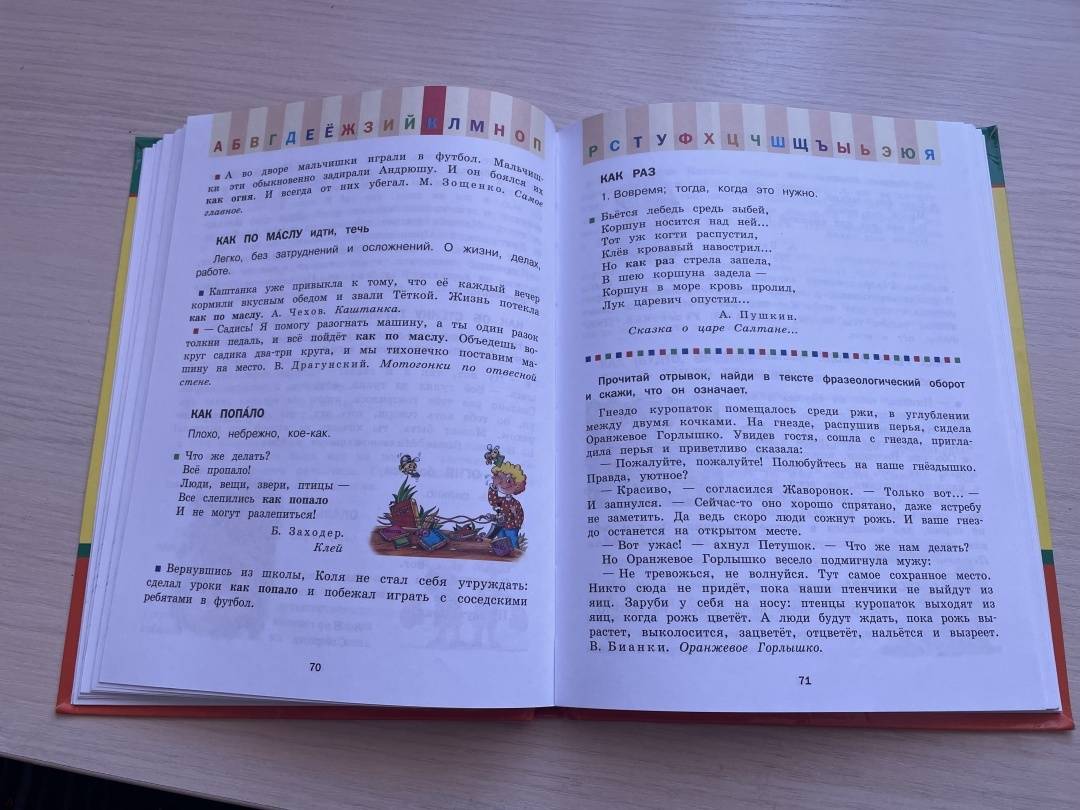 А Б В Г Д Е Ё Ж З И Й К Л М Н О П
А во дворе мальчишки играли в футбол. Мальчиш-
ки эти обыкновенно задирали Андрюшу. И он боялся их
как огня. И всегда от них убегал. М. Зощенко. Самое
главное.
КАК ПО МА́СЛУ идти, течь
Легко, без затруднений и осложнений. О жизни, делах,
работе.
Каштанка уже привыкла к тому, что её каждый вечер
кормили вкусным обедом и звали Тёткой. Жизнь потекла
как по маслу. А. Чехов. Каштанка.
— Садись! Я помогу разогнать машину, а ты один разок
толкни педаль, и всё пойдёт как по маслу. Объедешь во-
круг садика два-три круга, и мы тихонечко поставим ма-
шину на место. В. Драгунский. Мотогонки по отвесной
стене.
КАК ПОПА́ЛО
Плохо, небрежно, кое-как.
Что же делать?
Всё пропало!
Люди, вещи, звери, птицы —
Все слепились как попало
И не могут разлепиться!
Б. Заходер.
Клей
Вернувшись из школы, Коля не стал себя утруждать:
сделал уроки как попало и побежал играть с соседскими
ребятами в футбол.
70
Р С Т У Ф Х Ц Ч Ш Щ Ъ Ы Ь Э Ю Я
КАК РАЗ
1. Вовремя; тогда, когда это нужно.
Бьётся лебедь средь зыбей,
Коршун носится над ней...
Тот уж когти распустил,
Клёв кровавый навострил...
Но как раз стрела запела,
В шею коршуна задела —
Коршун в море кровь пролил,
Лук царевич опустил...
А. Пушкин.
Сказка о царе Салтане...
Прочитай отрывок, найди в тексте фразеологический оборот
и скажи, что он означает.
Гнездо куропаток помещалось среди ржи, в углублении
между двумя кочками. На гнезде, распушив перья, сидела
Оранжевое Горлышко. Увидев гостя, сошла с гнезда, пригла-
дила перья и приветливо сказала:
— Пожалуйте, пожалуйте! Полюбуйтесь на наше гнёздышко.
Правда, уютное?
— Красиво, — согласился Жаворонок. — Только вот... —
И запнулся. — Сейчас-то оно хорошо спрятано, даже ястребу
не заметить. Да ведь скоро люди сожнут рожь. И ваше гнез-
до останется на открытом месте.
— Вот ужас! — ахнул Петушок. — Что же нам делать?
Но Оранжевое Горлышко весело подмигнула мужу:
— Не тревожься, не волнуйся. Тут самое сохранное место.
Никто сюда не придёт, пока наши птенчики не выйдут из
яиц. Заруби у себя на носу: птенцы куропаток выходят из
яиц, когда рожь цветёт. А люди будут ждать, пока рожь вы-
растет, выколосится, зацветёт, отцветёт, нальётся и вызреет.
В. Бианки. Оранжевое Горлышко.
71